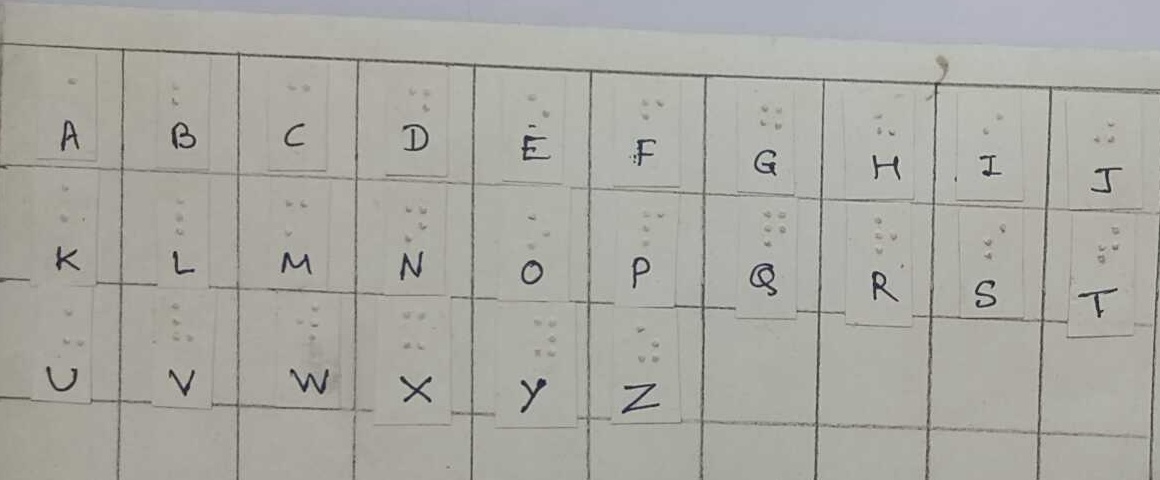 A B C D E F G H I J
K L M N O P Q R S T
U V W X Y Z